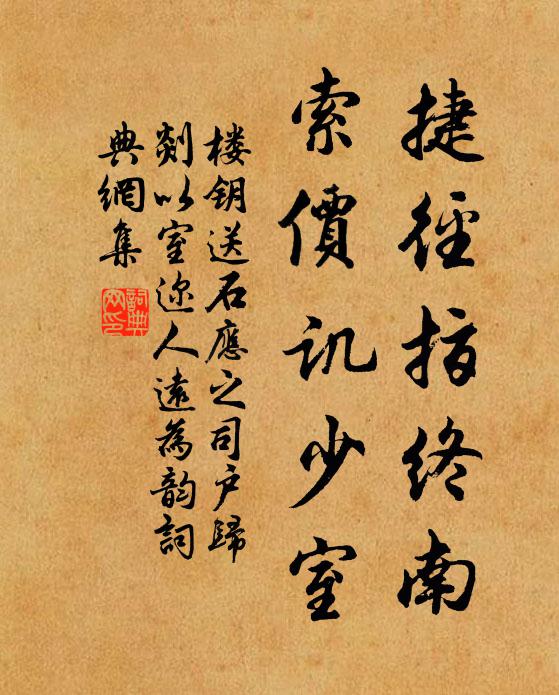 捷徑指終南
索價讥少室
楼钥送石應之司户歸
剡以室迩人遠為韵詞
典網集
詞典
网印